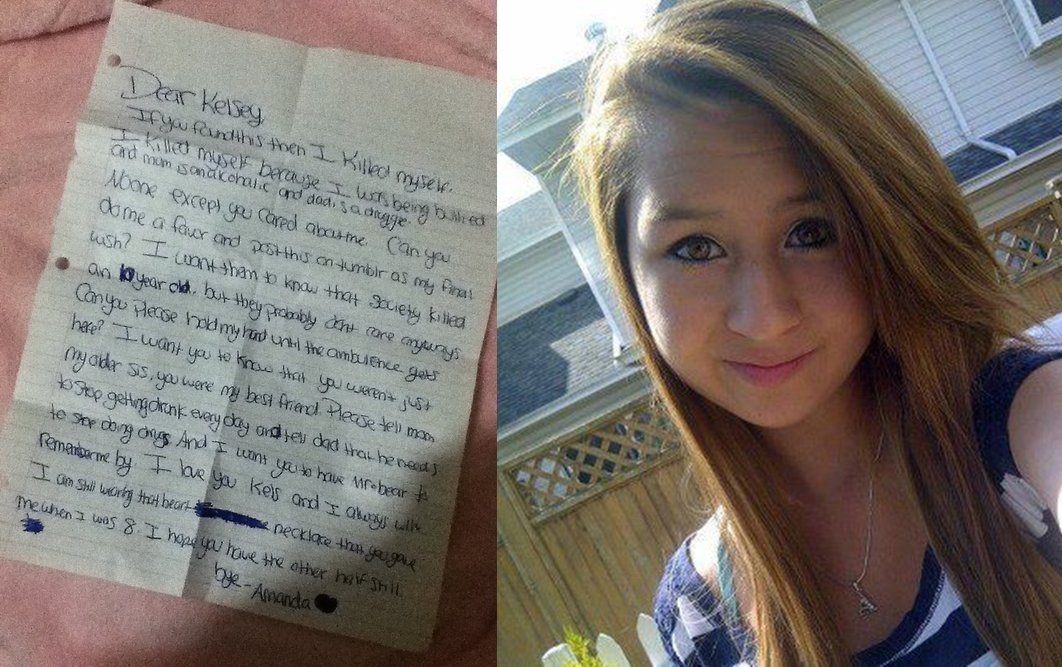 Dear Kelsey,
If you found this then I killed myself.
I killed myself because I was being bullied
and mom is an alcoholic and dad is a druggie.
Noone except you cared about me. Can you
do me a favor and post this on tumblr as my final
wish? I want them to know that society killed
an 10 year old. but they probably dont care anyways.
Can you Please hold my hand until the ambulence gets
here? I want you to know that you weren't just
my older sis, you were my best friend. Please tell mom
to stop getting drunk every day and tell dad that he needs
to stop doing drugs And I want you to have Mr. bear to
remember me by I love you Kels and I always will.
I am still wearing that heart necklace that you gave
me when I was 8. I hope you have the other half still.
bye - Amanda